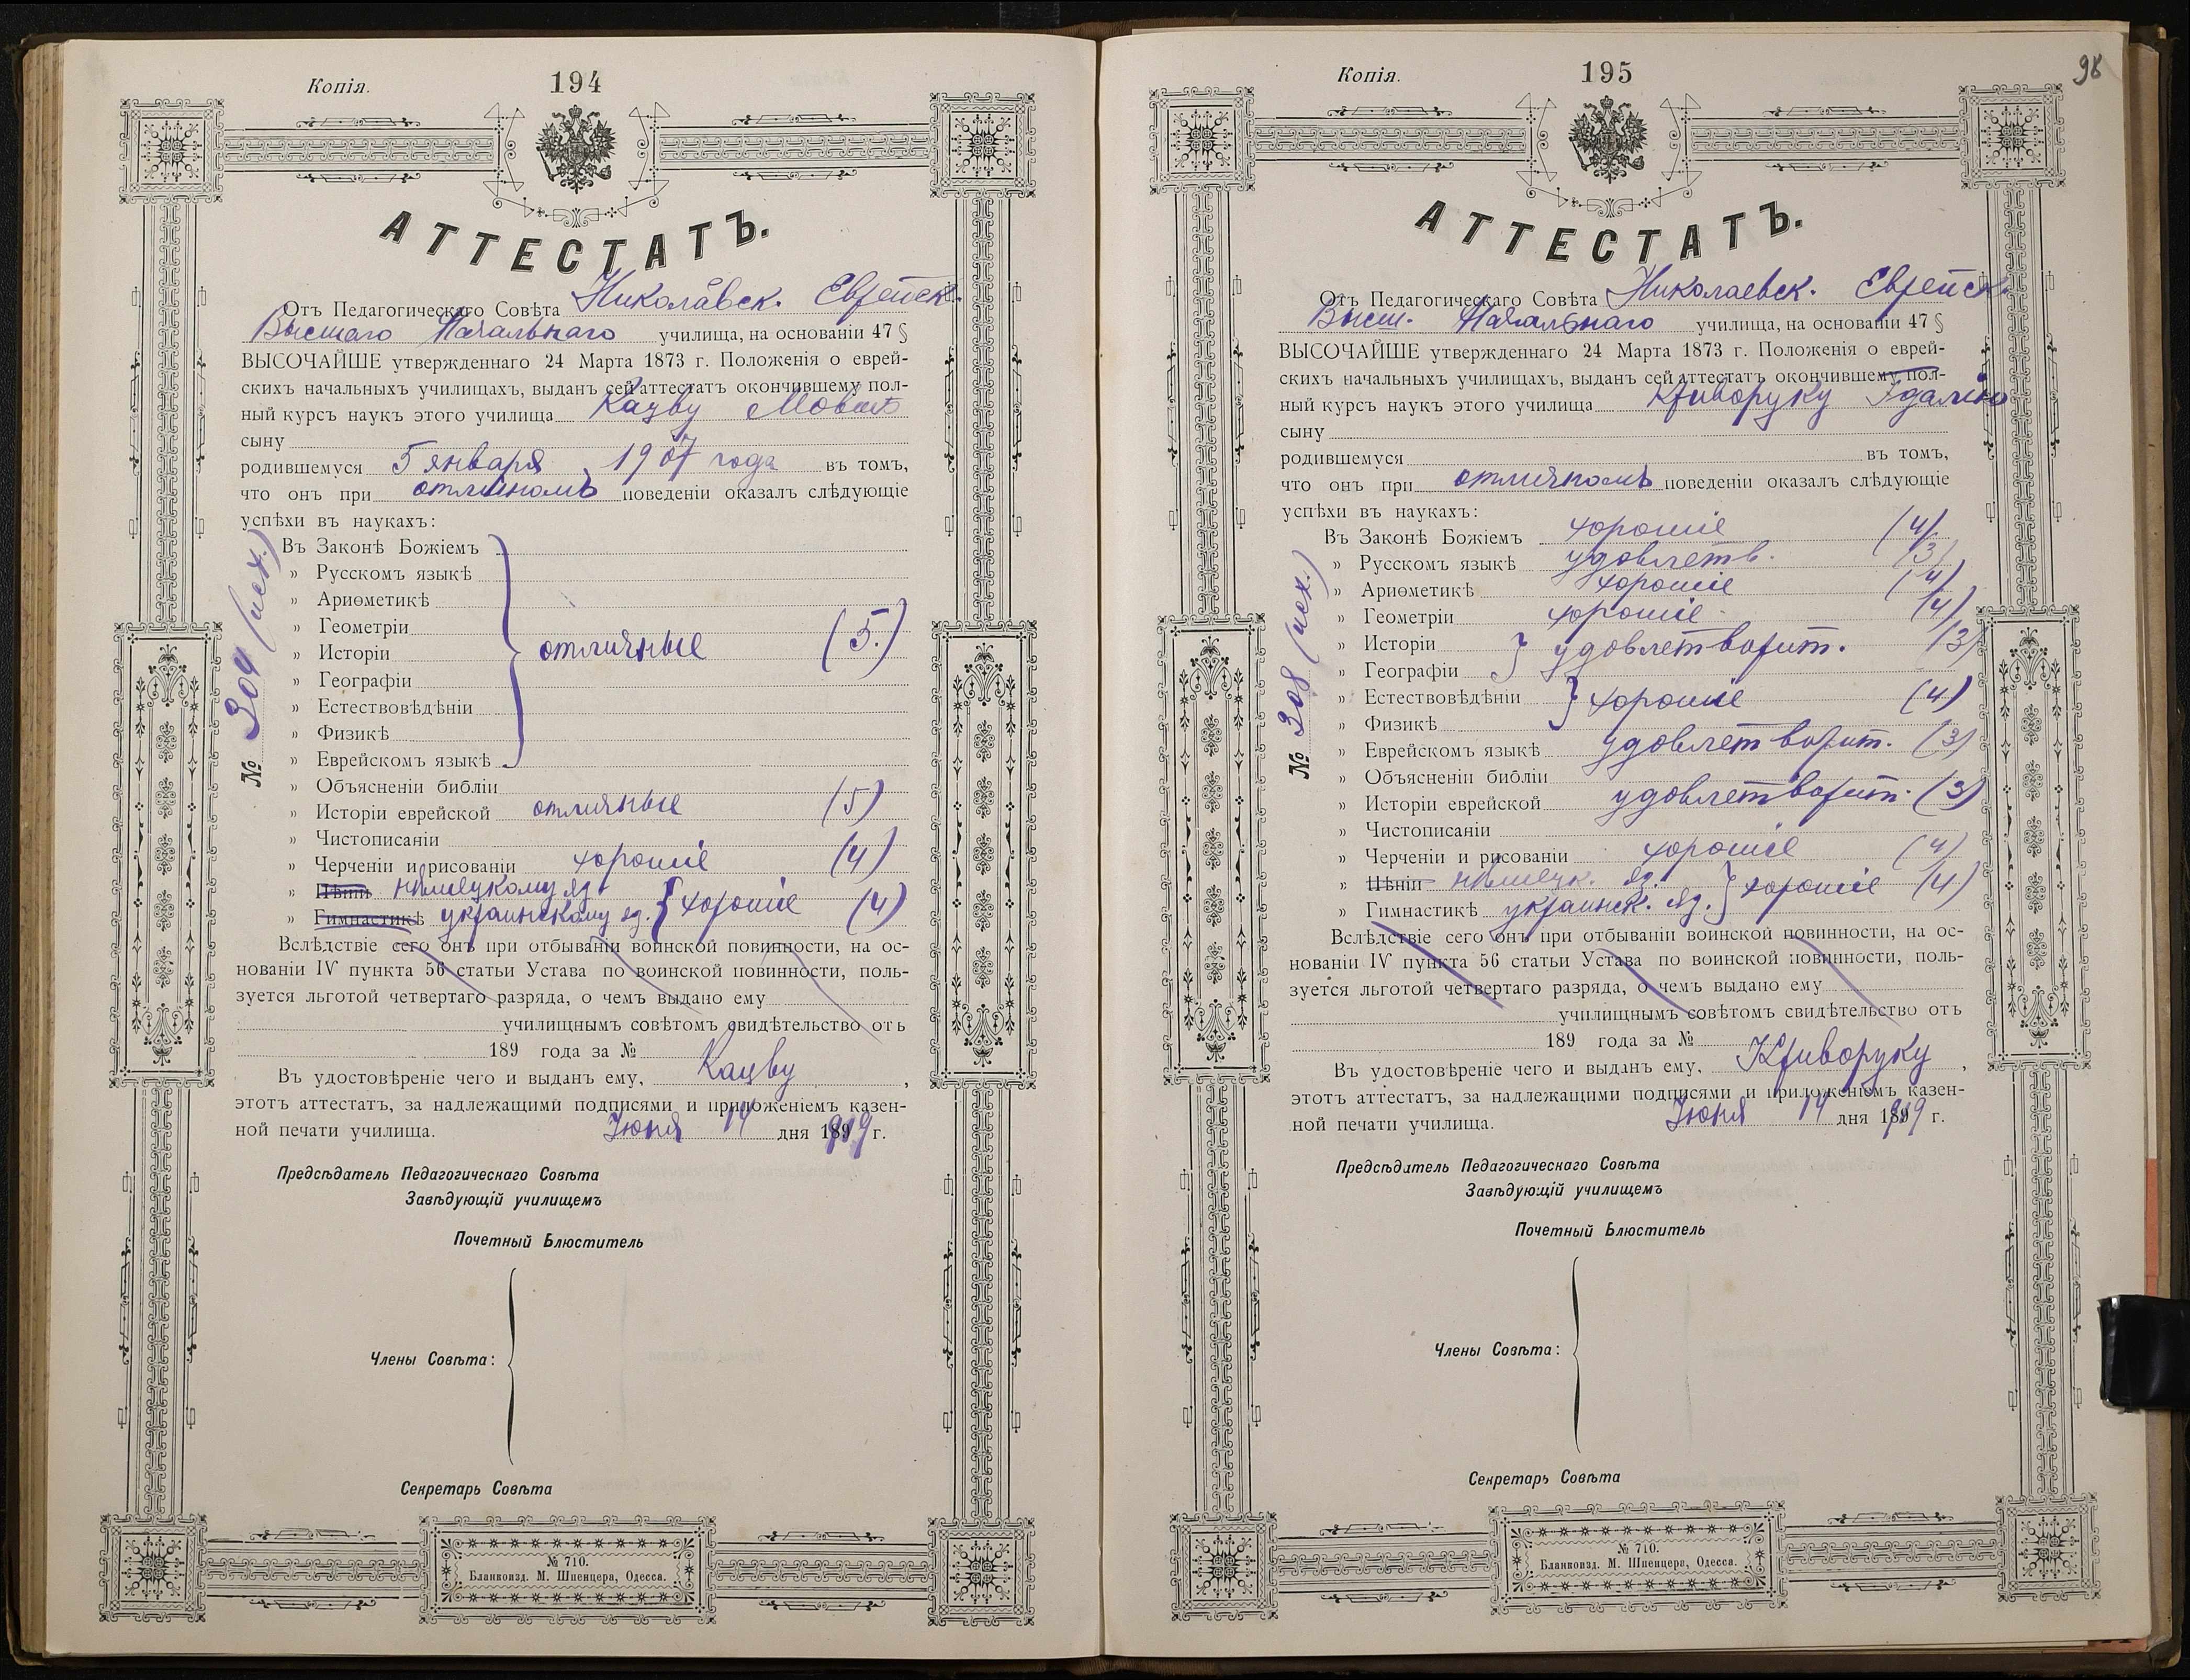 Копія.
194
АТТЕСТАТЪ.
Отъ Педагогическаго Совѣта Николаевск. Еврейск.
Высшаго Начальнаго училища, на основаніи 47 §
ВЫСОЧАЙШЕ утвержденнаго 24 Марта 1873 г. Положенія о еврей-
скихъ начальныхъ училищахъ, выданъ сей аттестатъ окончившему пол-
ный курсъ наукъ этого училища Кацву
сыну
родившемуся 5 января 1907 года въ томъ,
что онъ при отличномъ поведеніи оказалъ слѣдующіе
успѣхи въ наукахъ:
Въ Законѣ Божіемъ
» Русскомъ языкѣ
» Ариѳметикѣ
» Геометріи
» Исторіи отличные (5.)
» Географіи
» Естествовѣдѣніи
» Физикѣ
» Еврейскомъ языкѣ
» Объясненіи библіи
» Исторіи еврейской отличные (5)
» Чистописаніи
» Черченіи и рисованіи хорошіе (4)
» Пѣніи нѣмецкому яз.
» Гимнастикѣ украинскому яз. хорошіе (4)
№ 304 (исх.)
Вслѣдствіе сего онъ при отбываніи воинской повинности, на ос-
нованіи IV пункта 56 статьи Устава по воинской повинности, поль-
зуется льготой четвертаго разряда, о чемъ выдано ему
училищнымъ совѣтомъ свидѣтельство отъ
189 года за №
Въ удостовѣреніе чего и выданъ ему, Кацву,
этотъ аттестатъ, за надлежащими подписями и приложеніемъ казен-
ной печати училища. Іюня 14 дня 1919 г.
Предсѣдатель Педагогическаго Совѣта
Завѣдующій училищемъ
Почетный Блюститель
Члены Совѣта:
Секретарь Совѣта
№ 710.
Бланкоизд. М. Шпенцера, Одесса.
Копія.
195
98
АТТЕСТАТЪ.
Отъ Педагогическаго Совѣта Николаевск. Еврейск.
Высш. Начальнаго училища, на основаніи 47 §
ВЫСОЧАЙШЕ утвержденнаго 24 Марта 1873 г. Положенія о еврей-
скихъ начальныхъ училищахъ, выданъ сей аттестатъ окончившему пол-
ный курсъ наукъ этого училища Криворуку
сыну
родившемуся въ томъ,
что онъ при отличномъ поведеніи оказалъ слѣдующіе
успѣхи въ наукахъ:
Въ Законѣ Божіемъ хорошіе (4)
» Русскомъ языкѣ удовлетв. (3)
» Ариѳметикѣ хорошіе (4)
» Геометріи хорошіе (4)
» Исторіи удовлетворит. (3)
» Географіи
» Естествовѣдѣніи хорошіе (4)
» Физикѣ
» Еврейскомъ языкѣ удовлетворит. (3)
» Объясненіи библіи
» Исторіи еврейской удовлетворит. (3)
» Чистописаніи
» Черченіи и рисованіи хорошіе (4)
» Пѣніи нѣмецк. яз. хорошіе (4)
» Гимнастикѣ украинск. яз.
№ 308 (исх.)
Вслѣдствіе сего онъ при отбываніи воинской повинности, на ос-
нованіи IV пункта 56 статьи Устава по воинской повинности, поль-
зуется льготой четвертаго разряда, о чемъ выдано ему
училищнымъ совѣтомъ свидѣтельство отъ
189 года за №
Въ удостовѣреніе чего и выданъ ему, Криворуку,
этотъ аттестатъ, за надлежащими подписями и приложеніемъ казен-
ной печати училища. Іюня 14 дня 1919 г.
Предсѣдатель Педагогическаго Совѣта
Завѣдующій училищемъ
Почетный Блюститель
Члены Совѣта:
Секретарь Совѣта
№ 710.
Бланкоизд. М. Шпенцера, Одесса.